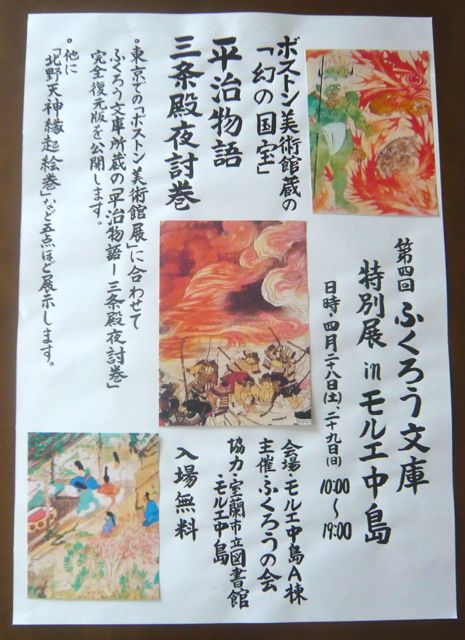 ボストン美術館蔵の
「幻の国宝」
平治物語
三条殿夜討巻
。東京での「ボストン美術館展」に合わせて
ふくろう文庫所蔵の「平治物語ー三条殿夜討巻」
完全復元版を公開します。
。他に
「北野天神縁起絵巻」など五点ほど展示します。
第四回 ふくろう文庫
特別展 in モルエ中島
日時・四月二十八日(土)、二十九日(日)
10:00〜19:00
会場・モルエ中島A棟
主催・ふくろうの会
協力・室蘭市立図書館
・モルエ中島
入場無料